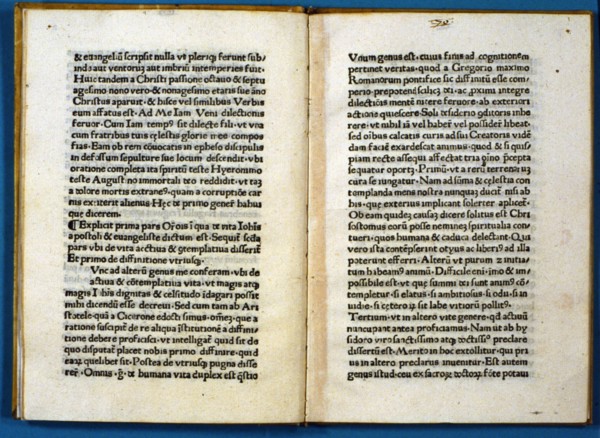 & euangeliū scripsit nulla vt pleriqȝ ferunt sub/
inda aut ventoruȝ aut imbriuȝ intemperies fuit.
Huic tandem a Christi passione octauo & septu
agesimo nono vero & nonagesimo etatis sue āno
Christus aparuit. & hisce vel similibus Verbis
eum affatus est. Ad Me Iam Veni dilectionis
feruor. Cum Iam tempꝰ sit dilecte fili. vt vna
cum fratribus tuis celestis glorie meę compos
fias. Eam ob rem cōuocatis in epheso discipulis
in defossum sepulture sue locum descendit. vbi
oratione completa ita spiritū teste Hyerommo
teste August no immortali deo reddidit. vt taȝ
a dolore mortis extraneꝰ. quam a corruptiōe car
nis exiterit alienus. Hęc de primo generē bahua
que dicerem.
¶ Explicit prima pars Orōis ī qua de vita Iohīs
apostoli & euangeliste dictum est. Sequit̄ secda
pars vbi de vita actiua & gtemplatiua disserit̄
Et primo de diffinitione vtriusqȝ.
Vnc ad alterū genus me conferam. vbi de
actua & cōtemplatiua vita. vt magis atqȝ
magis Iohīs dignitas & celsitudo idagari possit
mihi dicendū esse decreui. Sed cum tam ab Ari
stotele. quā a Cicerone edocti simus. omēȝ. que a
ratione suscipit̄ de re aliqua īstitutionē a diffini/
tione debere proficisci. vt intelligat̄ quid sit de
quo disputat̄ placet nobis primo diffinire. quid
earꝝ quelibet sit. Postea de vtriusqȝ pugna disse
rere. Omnis. g̊. de humana vita duplex est qstio
Vnum genus est. cuius finis ad cognitionem
pertinet veritas. quod a Gregorio maximo
Romanorum pontifice sic diffinitū esse com/
perio. prepotens scilicȝ dei. ac pximi integre
dilectiōis mentē retinere feruore. ab exteriori
actione quiescere. Soli desiderio gditoris inhe
rere. vt nihil iā vel habere vel possidere libeat.
sed oībus calcatis curis ad sui Creatoris vidē
dam faciē exardescat animus. quod & si quis
piam recte assequi affectat tria gino pcepta
sequatur oportȝ. Primū. vt a rerū terrenarūȝ
cura se iungatur. Nam ad sūma & celestia con
templanda mens nostra nunquaȝ ducit̄ nisi ab
his. que exterius implicant solerter aplicet̄.
Ob eam quidez causaȝ dicere solitus est Chri
sostomus eorū posse neminez spiritualia con/
tueri. quos humana & caduca delectant. Qui
vero ista contēpserint otyus ac liberiꝰ ad illa
paterunt efferri. Alterū vt purum z initia/
tum habeamꝰ animū. Difficile eni. imo & im/
possibile est. vt que summi dei sunt animꝰ cō/
templetur. si elatus. si ambitiosus. si odii. si in
uidie. si ceterꝝ de sit labe vitiorū pollutꝰ.
Tertium. vt in altero vite genere. qd actiuū
nuncupant antea proficiamus. Nam ut ab hy
sidoro viro sanctissimo atqȝ doctissīo preclare
dissertū est. Merito in hoc extollitur. qui pri
us in altero preclarius inuenitur. Est autem
genus istud. ceu ex sacroꝝ doctoꝝ fōte potaui